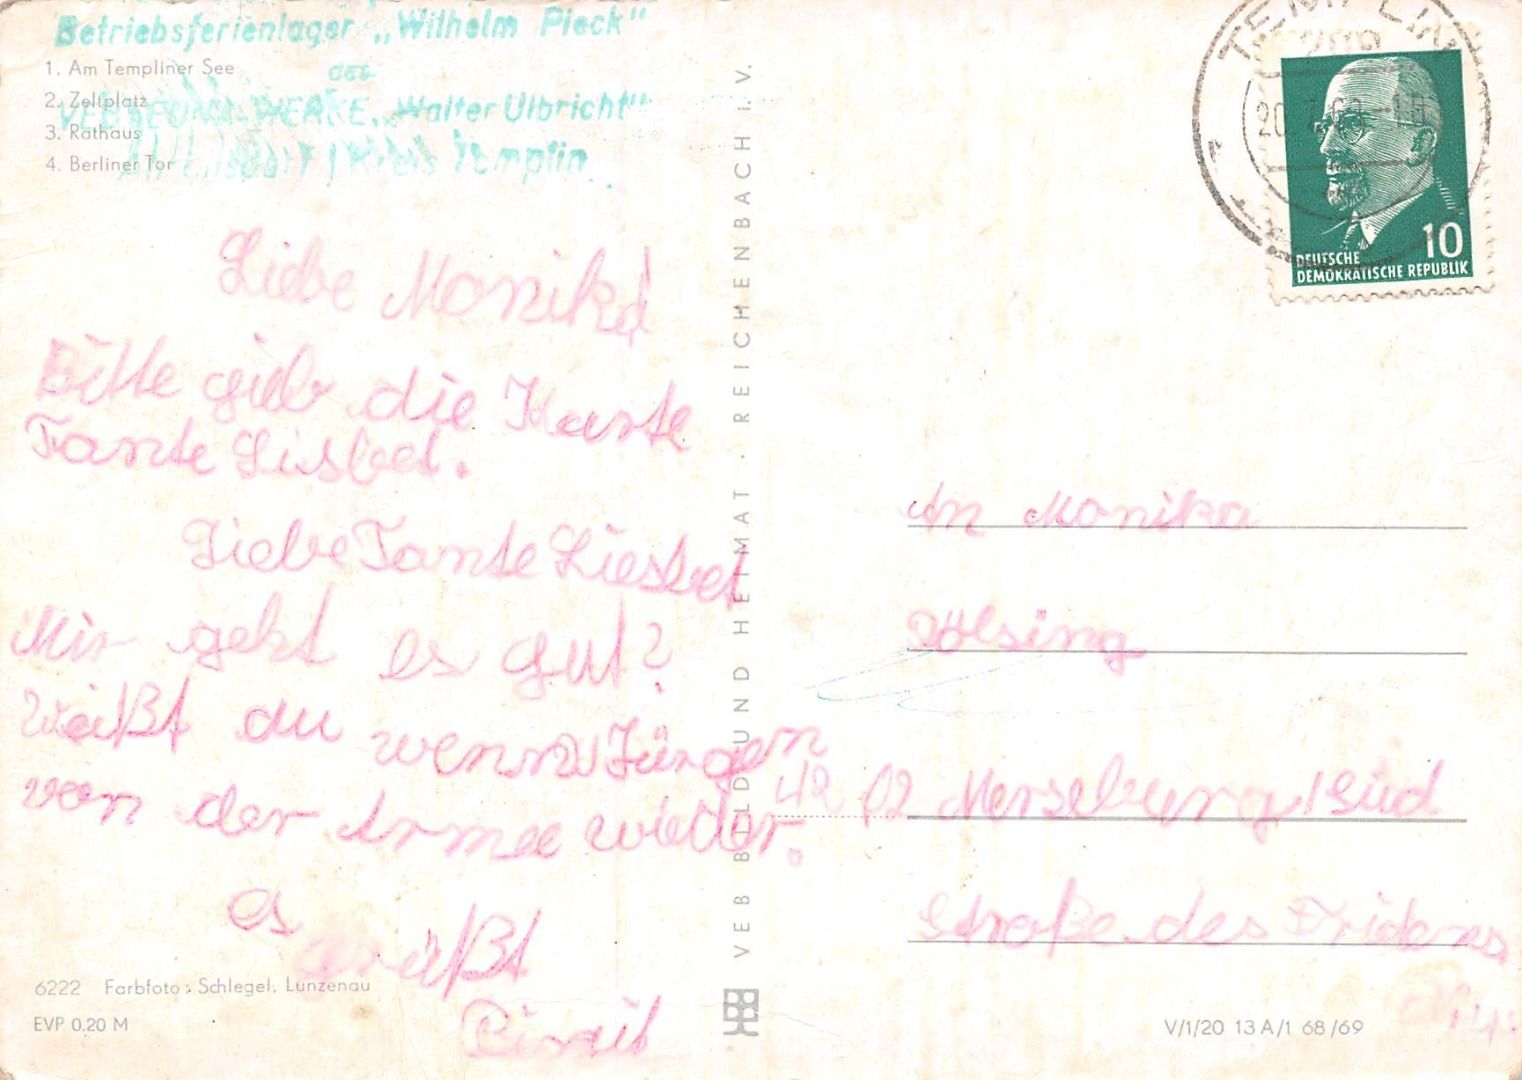 Betriebsferienlager „Wilhelm Pieck"
des
VEB LEUNA-WERKE „Walter Ulbricht"
Kreis Templin
1. Am Templiner See
2. Zeltplatz
3. Rathaus
4. Berliner Tor
Liebe Monika
Bitte gieb die Karte
Tante Lisbet.
Liebe Tante Liesbet
Mir geht es gut?
Weißt du wenn Jürgen
von der Armee wieder.
es
grüßt
Birgit
6222 Farbfoto: Schlegel, Lunzenau
EVP 0.20 M
VEB BILD UND HEIMAT · REICHENBACH i. V.
TEMPLIN
209
20.
DEUTSCHE
DEMOKRATISCHE REPUBLIK
10
An Monika
Dölsing
42 02 Merseburg/Süd
Straße des Fridens
V/1/20 13 A/1 68/69